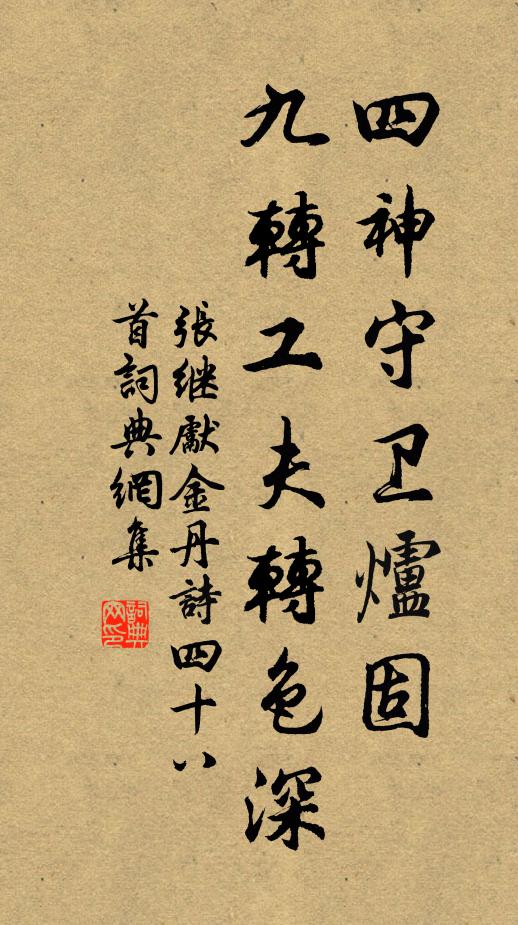 四神守卫爐固
九轉工夫轉色深
張继獻金丹詩四十八
首詞典網集
詞典
网印